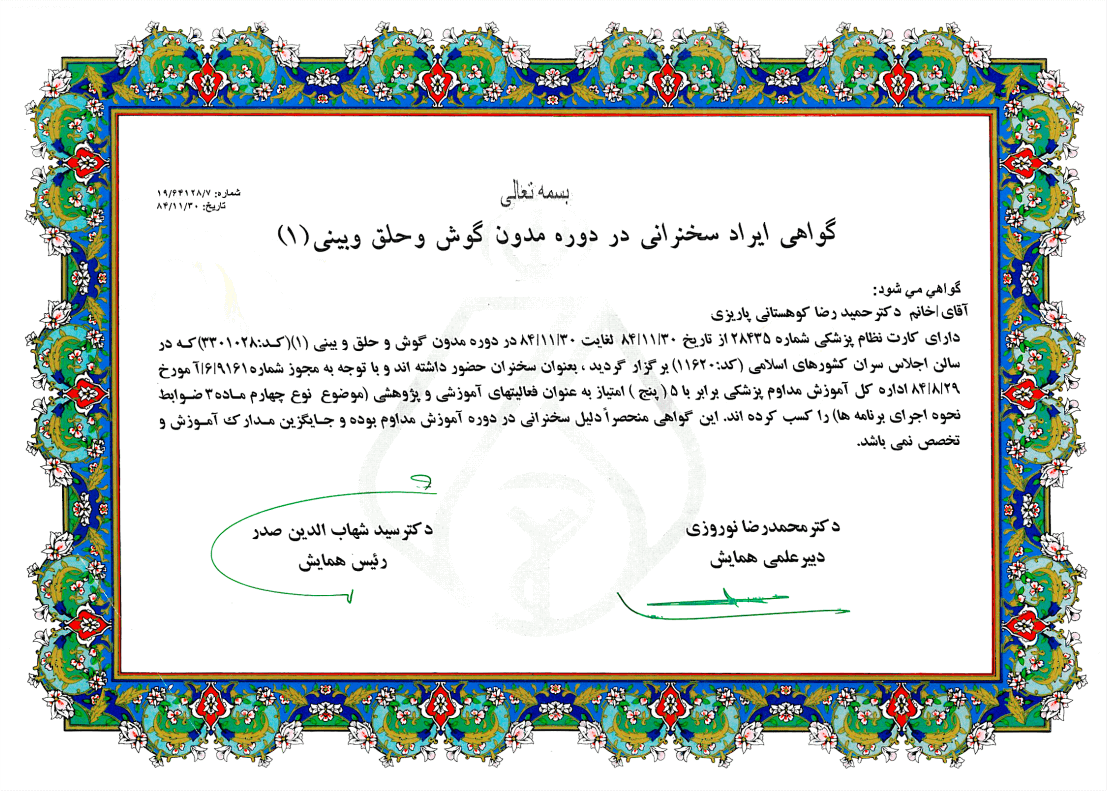 بسمه تعالی
شماره: ۱۹/۶۴۱۲۸/۷
تاریخ: ۸۴/۱۱/۳۰
گواهی ایراد سخنرانی در دوره مدون گوش وحلق وبینی(۱)
گواهي مي شود:
آقای/خانم دکترحمید رضا کوهستانی پاریزی
دارای کارت نظام پزشکی شماره ۲۸۴۳۵ از تاریخ ۸۴/۱۱/۳۰ لغایت ۸۴/۱۱/۳۰ در دوره مدون گوش و حلق و بینی (۱)(کـد:۳۳۰۱۰۲۸)کـه در
سالن اجلاس سران کشورهای اسلامی (کد:۱۱۶۲۰) برگزار گردید ، بعنوان سخنران حضور داشته اند و با توجه به مجوز شماره۶/۹۱۶۱/آ مورخ
۸۴/۸/۲۹ اداره کل آموزش مداوم پزشکی برابر با ۵ ( پنج ) امتیاز به عنوان فعالیتهای آموزشی و پژوهشی (موضوع نوع چهارم مـاده۳ ضـوابط
نحوه اجرای برنامه ها) را کسب کرده اند. این گواهی منحصراً دلیل سخنرانی در دوره آموزش مداوم بوده و جـایگزین مـدارک آمـوزش و
تخصص نمی باشد.
دکترمحمدرضا نوروزی
دبیرعلمی همایش
دکترسید شهاب الدین صدر
رئیس همایش